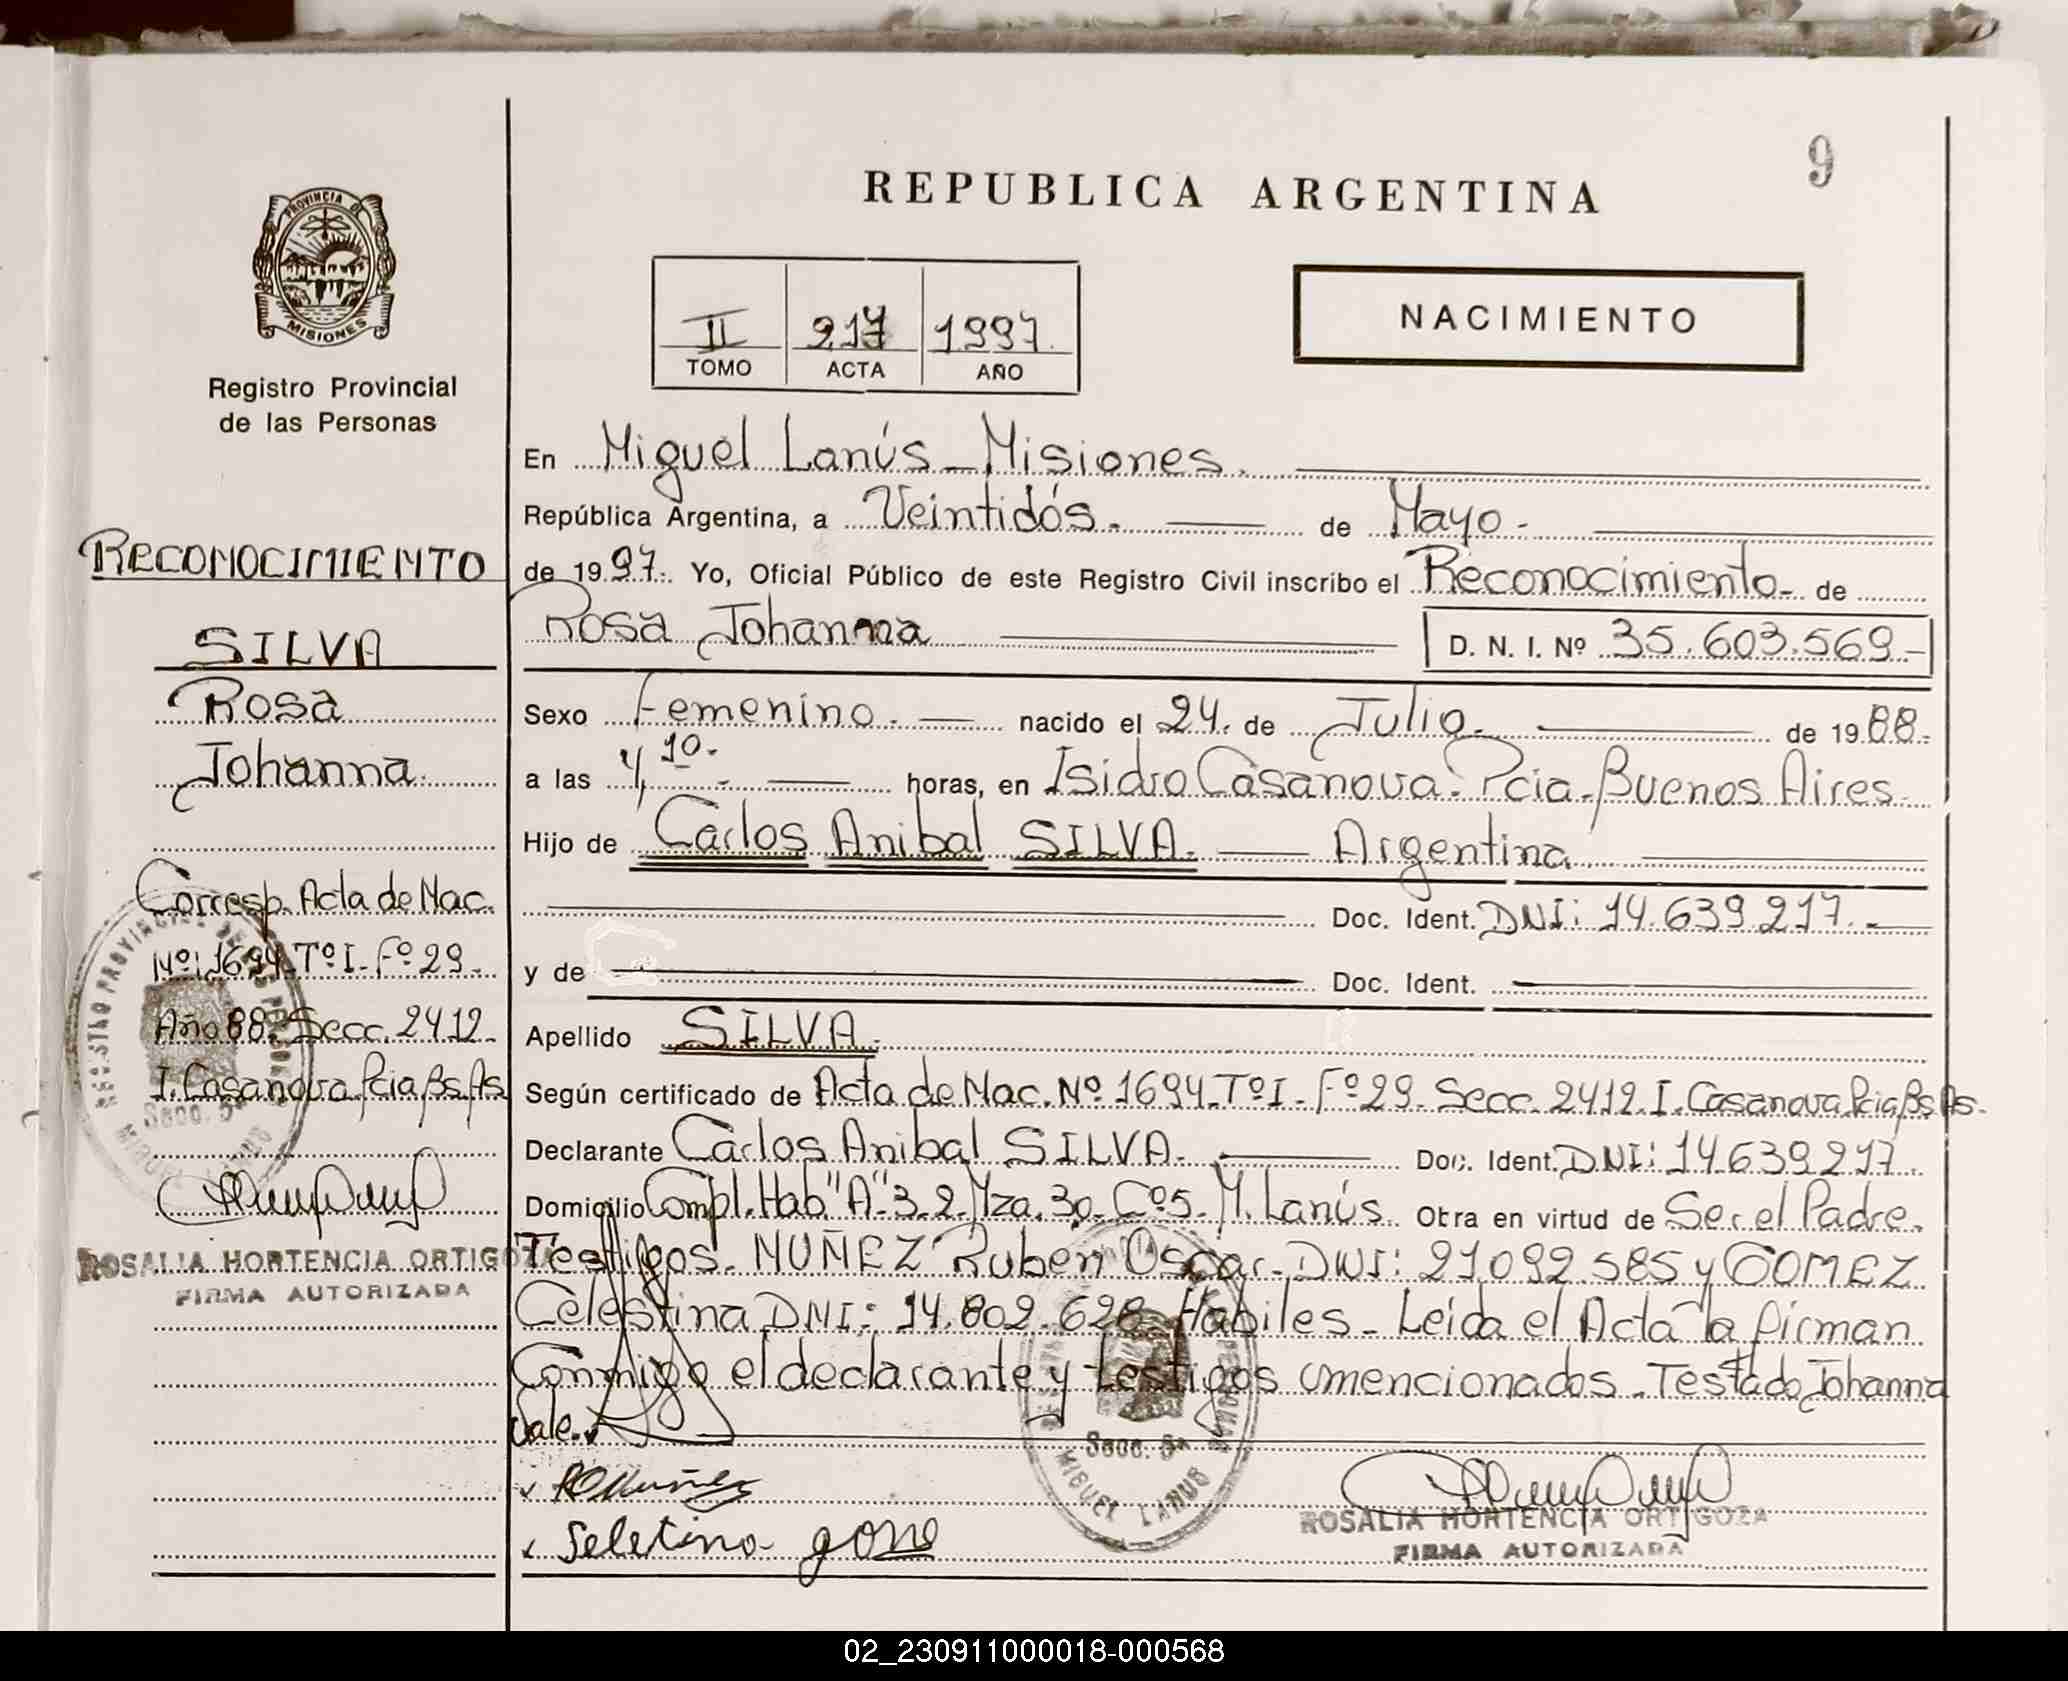 9
REPUBLICA ARGENTINA
PROVINCIA DE
MISIONES
Registro Provincial
de las Personas
II 217 1997.
TOMO ACTA AÑO
NACIMIENTO
En Miguel Lanús - Misiones.
República Argentina, a Veintidós. de Mayo.
de 1997. Yo, Oficial Público de este Registro Civil inscribo el Reconocimiento de
Rosa Johanna D. N. I. Nº 35.603.569.-
Sexo Femenino. nacido el 24. de Julio. de 1988.
a las 4,10. horas, en Isidro Casanova. Pcia. Buenos Aires.
Hijo de Carlos Anibal SILVA. Argentina
Doc. Ident. DNI: 14.639.217.-
y de Doc. Ident.
Apellido SILVA.
Según certificado de Acta de Nac. Nº 1694. Tº I - Fº 29. Secc. 2412. I. Casanova Pcia Bs As.
Declarante Carlos Anibal SILVA. Doc. Ident. DNI: 14639217.
Domicilio Compl. Hab "A" 3.2. Mza. 30. Cº 5. M. Lanús. Otra en virtud de Ser el Padre.
Testigos. NUÑEZ Ruben Oscar. DNI: 21.092.585 y GOMEZ
Celestina DNI: 14.802.628 Habiles - Leida el Acta la firman
Conmigo el declarante y testigos mencionados. Testado, Johanna
Vale.
Nuñez
Seletina gome
ROSALIA HORTENCIA ORTIGOZA
FIRMA AUTORIZADA
Secc. 5ª
MIGUEL LANUS
RECONOCIMIENTO
SILVA
Rosa
Johanna
Corresp. Acta de Nac.
Nº: 1694. Tº I - Fº 29.
Año 88. Secc. 2412.
I. Casanova Pcia Bs As
REGISTRO PROVINCIAL DE LAS PERSONAS
Secc. 5ª
MIGUEL LANUS
ROSALIA HORTENCIA ORTIGOZA
FIRMA AUTORIZADA
02_230911000018-000568